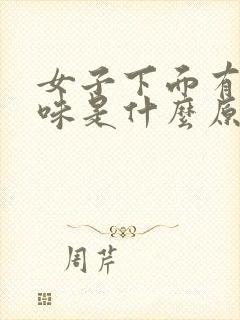 女子下而有
味是什麼原
周芹